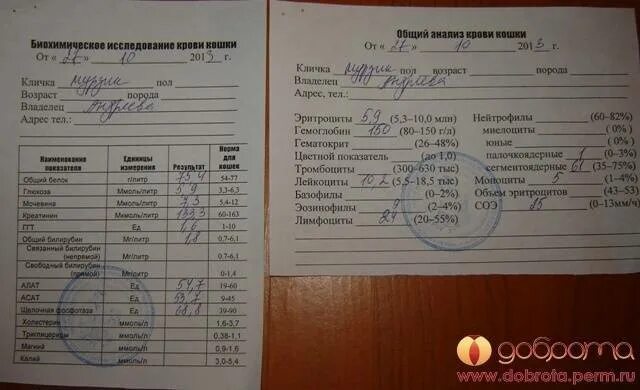 Биохимическое исследование крови кошки
От « 27 » 10 2013 г.
Кличка Мурзик пол
Возраст порода
Владелец Андреева
Адрес, тел.:
Наименование показателя Единицы измерения Результат Норма для кошек
Общий белок г/литр 75,4 54-77
Глюкоза Ммоль/литр 5,9 3,3-6,3
Мочевина Ммоль/литр 7,3 5,4-12
Креатинин Ммоль/литр 133,3 60-163
ГГТ Ед 6,6 1-10
Общий билирубин Мг/литр 1,8 0,7-6,1
Связанный билирубин (непрямой) Мг/литр 0,7-6,1
Свободный билирубин (прямой) Мг/литр 0-1,4
АЛАТ Ед 54,7 19-60
АСАТ Ед 53,7 9-45
Щелочная фосфотаза Ед 68,8 39-90
Холестерин ммоль/л 1,6-3,7
Триглицериды ммоль/л 0,38-1,1
Магний ммоль/л 0,9-1,6
Калий ммоль/л 3,0-5,4
Общий анализ крови кошки
От « 27 » 10 2013 г.
Кличка Мурзик пол возраст порода
Владелец Андреева
Адрес, тел.:
Эритроциты 5,9 (5,3–10,0 млн)
Гемоглобин 150 (80–150 г/л)
Гематокрит (26–48%)
Цветной показатель (до 1,0)
Тромбоциты (300–630 тыс)
Лейкоциты 10,2 (5,5–18,5 тыс)
Базофилы (0–2%)
Эозинофилы 9 (2–4%)
Лимфоциты 24 (20–55%)
Нейтрофилы (60–82%)
миелоциты ( 0%)
юные ( 0%)
палочкоядерные 1 (0–3%)
сегментоядерные 61 (35–75%)
Моноциты 5 (1–4%)
Объем эритроцитов (43–53)
СОЭ 85 (0–13мм/ч)
доброта
www.dobrota.perm.ru